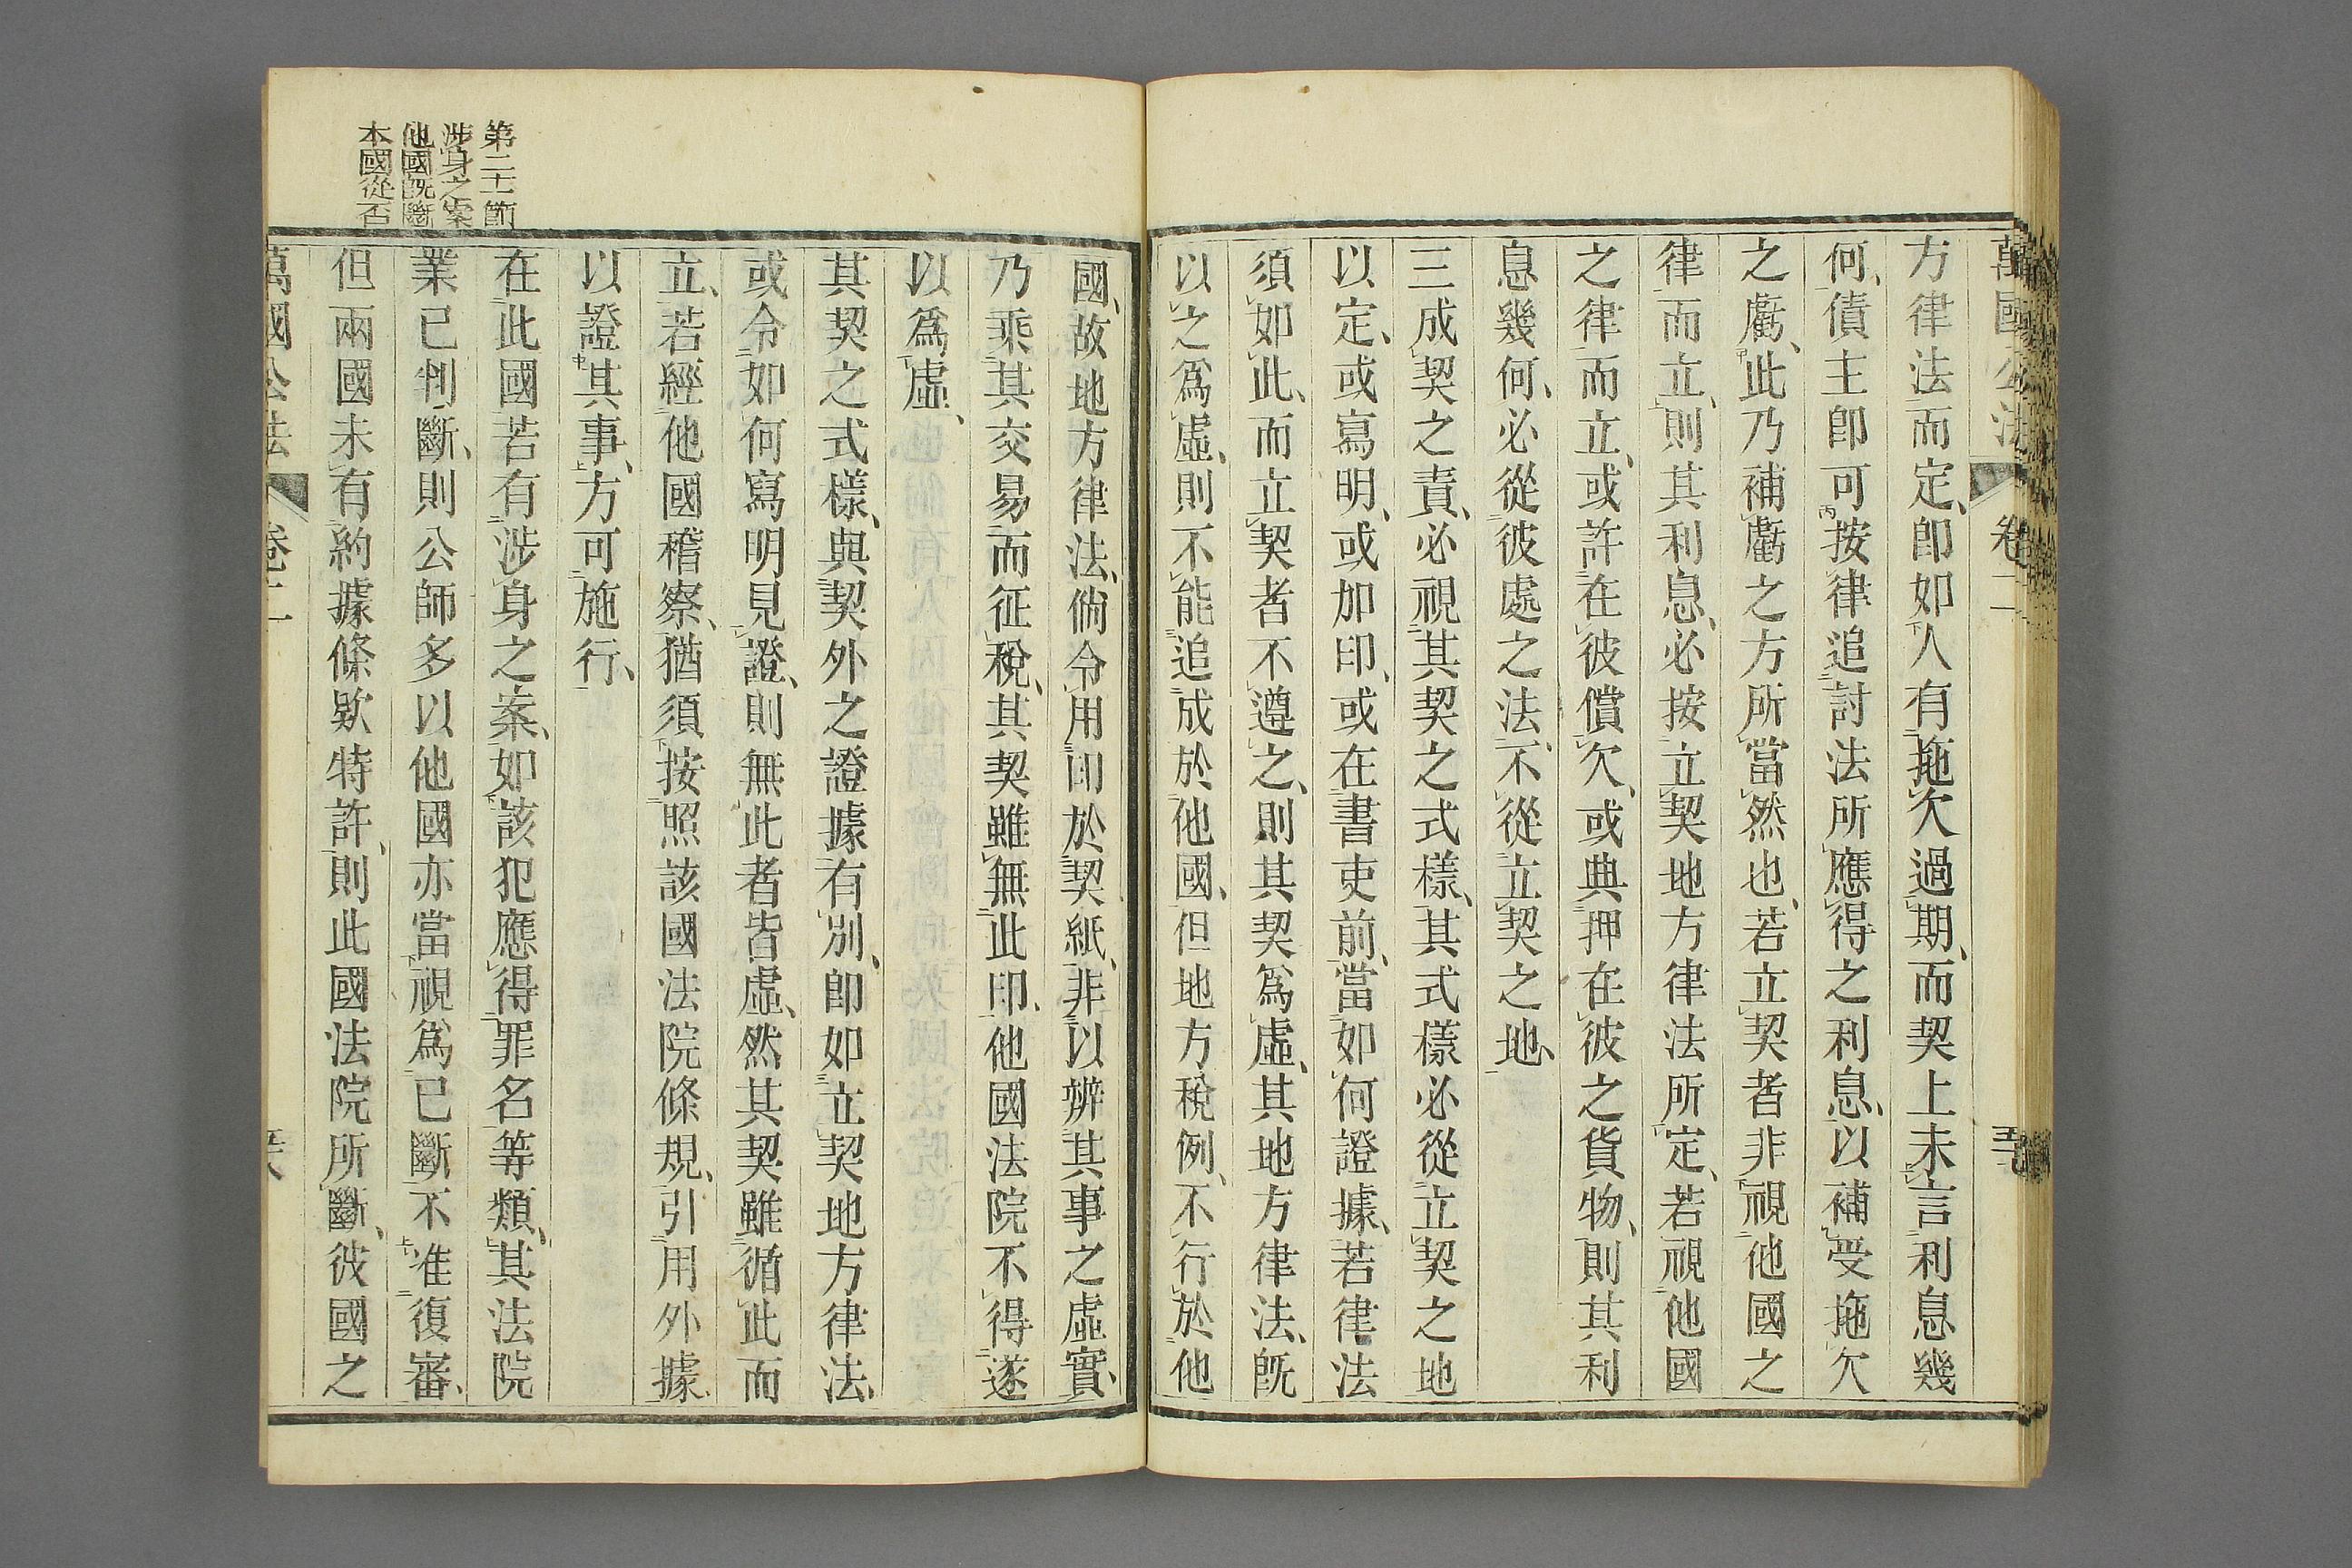 萬國公法 卷二 五十七
方律法而定、卽如人有拖欠過期、而契上未言利息幾
何、債主卽可按律追討法所應得之利息、以補受拖欠
之虧、此乃補虧之方所當然也、若立契者非視他國之
律而立、則其利息、必按立契地方律法所定、若視他國
之律而立、或許在彼償欠、或典押在彼之貨物、則其利
息幾何、必從彼處之法、不從立契之地、
三成契之責、必視其契之式樣、其式樣必從立契之地
以定、或寫明、或加印、或在書吏前、當如何證據、若律法
須如此、而立契者不遵之、則其契爲虛、其地方律法、旣
以之爲虛、則不能追成於他國、但地方稅例、不行於他
國、故地方律法、倘令用印於契紙、非以辨其事之虛實、
乃乘其交易而征稅、其契雖無此印、他國法院不得遂
以爲虛、
其契之式樣、與契外之證據有別、卽如立契地方律法、
或令如何寫明見證、則無此者皆虛、然其契雖循此而
立、若經他國稽察、猶須按照該國法院條規、引用外據、
以證其事、方可施行、
第二十一節
涉身之案
他國旣斷
本國從否
在此國若有涉身之案、如該犯應得罪名等類、其法院
業已判斷、則公師多以他國亦當視爲已斷不准復審、
但兩國未有約據條款特許、則此國法院所斷、彼國之
萬國公法 卷二